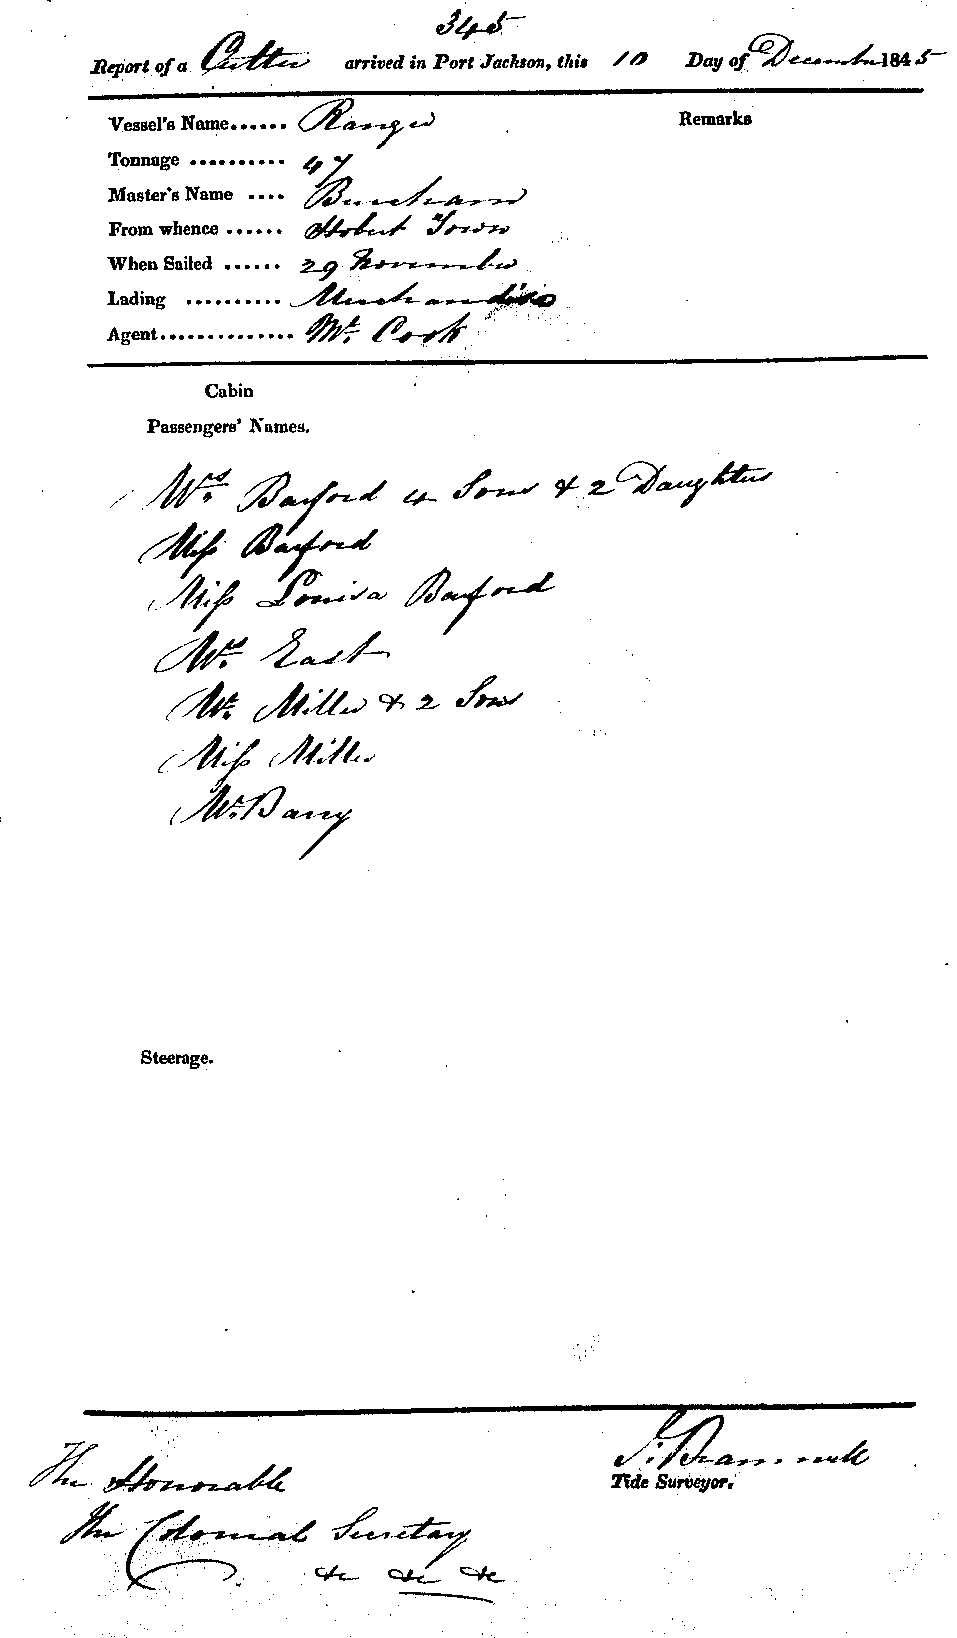 345
Report of a Cutter arrived in Port Jackson, this 10 Day of December 1845
Vessel's Name...... Ranger
Remarks
Tonnage .......... 47
Master's Name .... Burcham
From whence ...... Hobart Town
When Sailed ...... 29 November
Lading .......... Merchandise
Agent.............. Mr. Cook
Cabin
Passengers' Names.
Mrs. Barford 4 Sons & 2 Daughters
Miss Barford
Miss Louisa Barford
East
Miller & 2 Sons
Miss Miller
Mr. Barry
Steerage.
Tide Surveyor.
The Honorable
The Colonial Secretary
&c &c &c